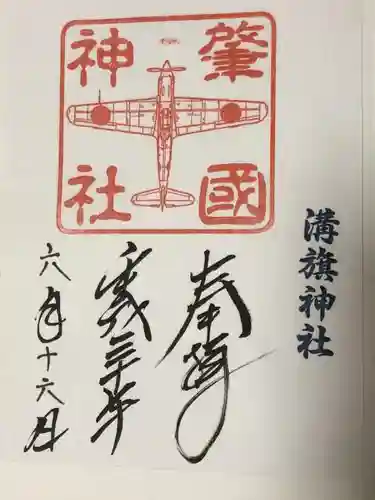 肇國
神社
溝旗神社
奉拝
平成三十年
六月十六日